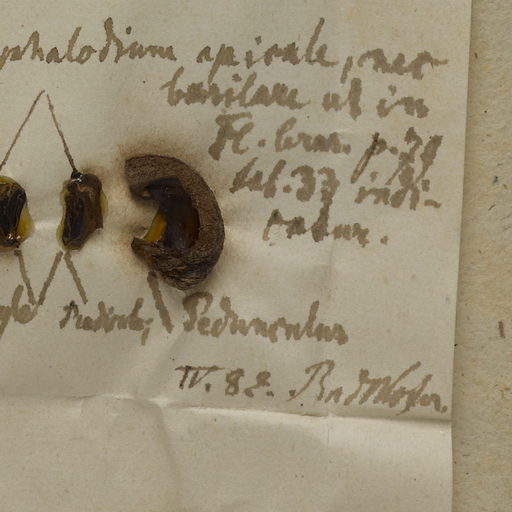 phalodium apicale, nec
basilare ut in
Fl. bras. p. 78
tab. 33 indi-
catur.
Radicula; Pedunculus
IV. 82. Radlkofer.